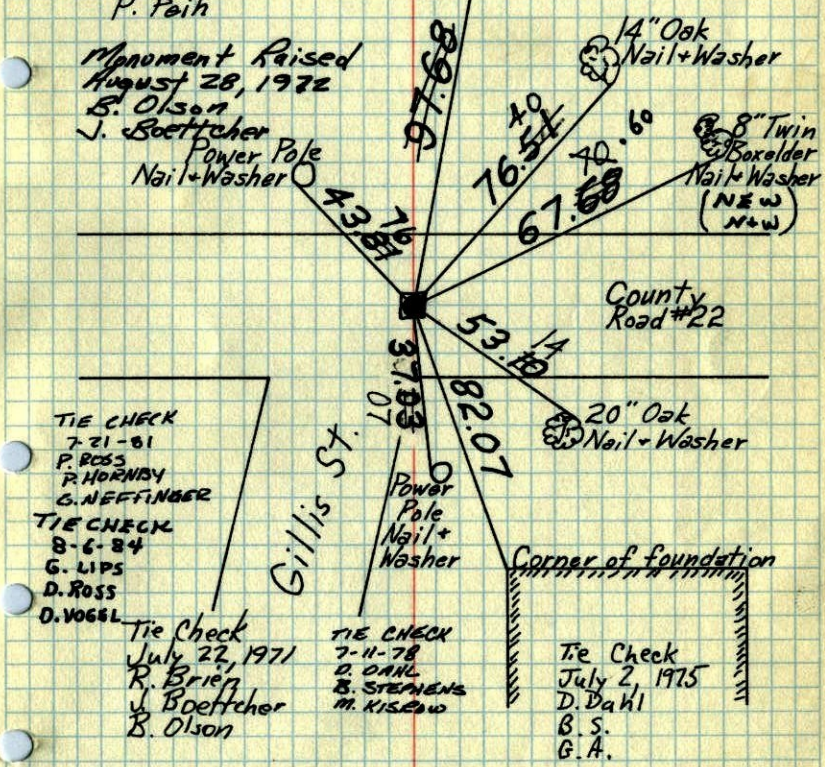 P. Pein
Monument Raised
August 28, 1972
B. Olson
J. Boettcher
Power Pole
Nail+Washer
43.87
76
97.68
14" Oak
Nail+Washer
76.51
40
8" Twin
Boxelder
Nail+Washer
(NEW
N+W)
67.68
40
.60
County
Road #22
53.10
14
20" Oak
Nail+Washer
37.03
07
82.07
Power
Pole
Nail+
Washer
Gillis St.
Corner of foundation
TIE CHECK
7-21-81
P. ROSS
P. HORNBY
G. NEFFINGER
TIE CHECK
8-6-84
G. LIPS
D. ROSS
D. VOGEL
Tie Check
July 22, 1971
R. Brien
J. Boettcher
B. Olson
TIE CHECK
7-11-78
D. DAHL
B. STEPHENS
M. KISROW
Tie Check
July 2, 1975
D. Dahl
B. S.
G. A.